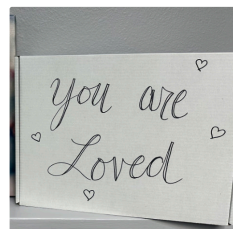 You are
Loved